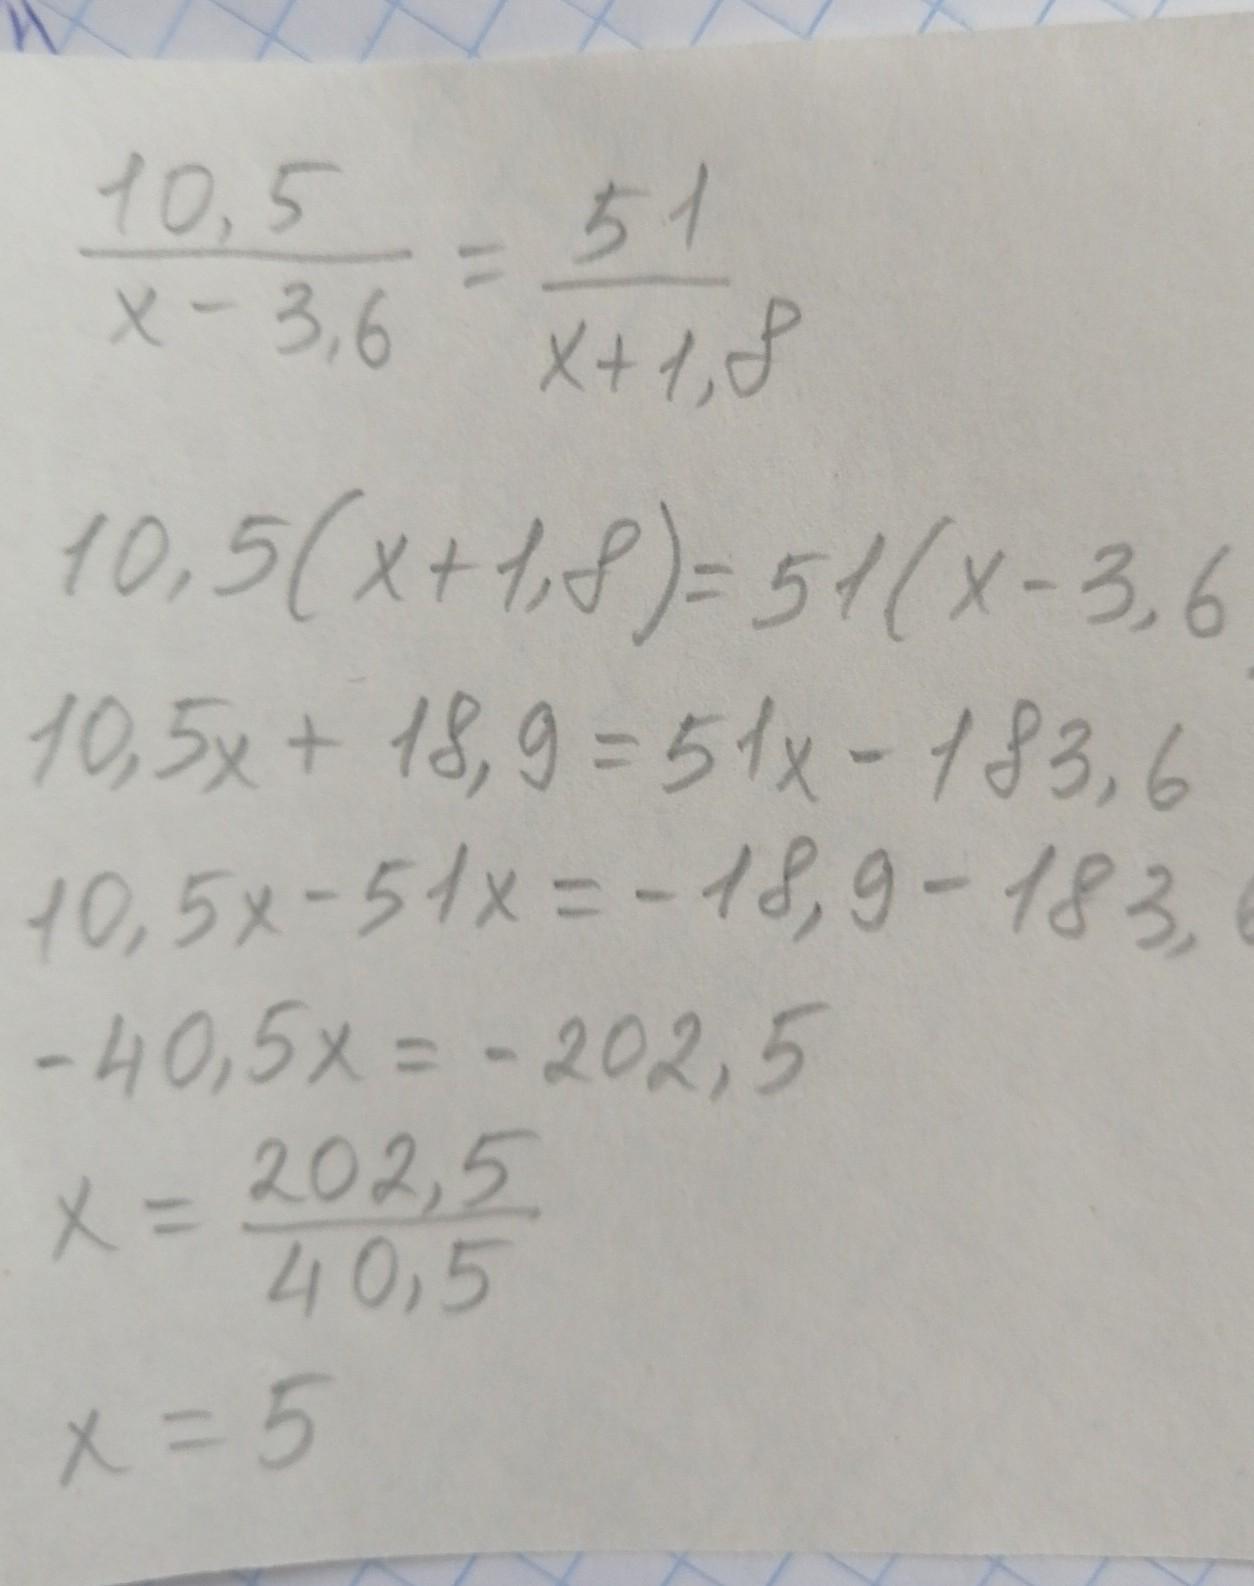 10,5/(x - 3,6) = 51/(x+1,8)
10,5(x+1,8)=51(x-3,6
10,5x + 18,9 = 51x - 183,6
10,5x - 51x = - 18,9 - 183,6
-40,5x = - 202,5
x = 202,5/40,5
x = 5